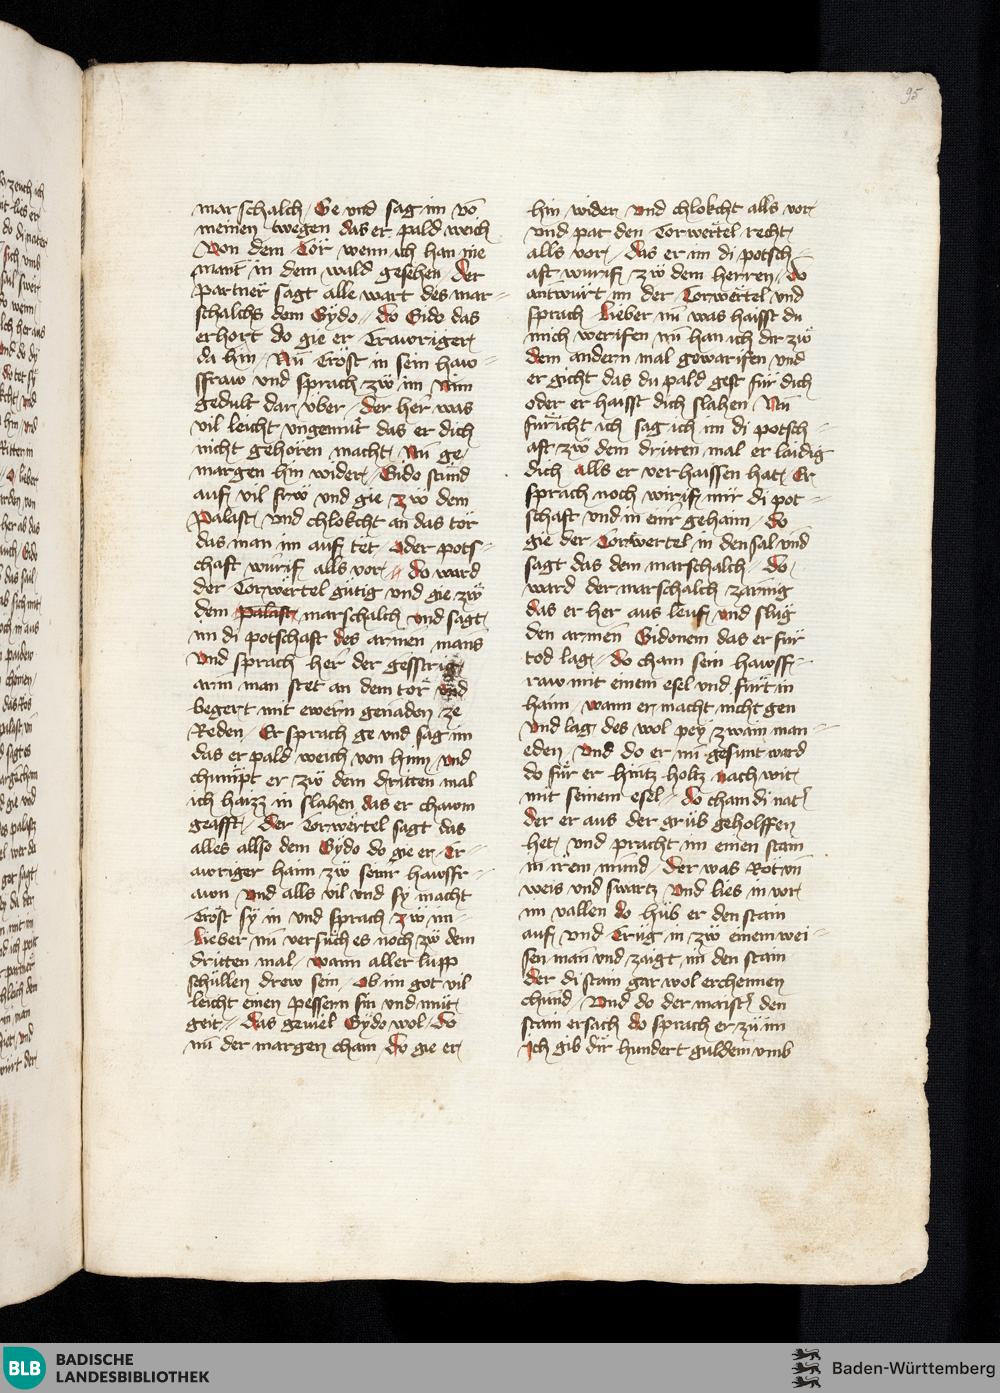 95
mar schalch / Ge vnd sag im vō
meinen twegen das er pald weich
Von dem Tör wenn ich han nie
mant in dem wald gesehen / der
partner sagt alle wart des mar
schalchs dem Gydo / do Gido das
erhort do gie er Trawriger
da hin / Nu Tröst in sein haw
sfraw vnd sprach zw im Nim
gedult dar vber / der her was
vil leicht vngemut das er dich
nicht gehoren macht / Nu ge
margen hin wider / Gido stund
auf vil frw vnd gie zw dem
Palast / vnd chlokcht an das tör
das man im auf tet / oder pots
chaft wurif alls vor / do ward
der Torwertel gütig vnd gie zw
dem palast marschalch vnd sagt
im di potschaft des armen mans
vnd sprach her der gesstrig
arm man stet an dem tor vnd
begert mit ewern genaden ze
Reden / Er sprach ge vnd sag im
das er pald weich von hinn / vnd
chumpt er zw dem dritten mal
ich haizz in slahen das er chawm
geafft / der Torwertel sagt das
alles allso dem Gydo do gie er Tr
awriger haim zw seinr hawsfr
awn vnd alls vil vnd sy macht
Tröst sy in vnd sprach zw im
lieber nu versuch es noch zw dem
dritten mal / wann aller lupp
schullen drew sein / Ob im got vil
leicht einen pessern sin vnd mut
geit / das geuiel Gydo wol / do
nu der margen cham do gie er
hin wider vnd chlokcht alls vor
vnd pat den Torwertel recht
alls vor / das er im di potsch
aft wurif zw dem herren / do
antwurt im der Torwertel vnd
sprach lieber nu was haisst du
mich werifen nu han ich dir zw
dem andern mal gewarifen vnd
er gicht das du pald gest für dich
oder er haisst dich slahen Nu
furicht ich sag ich im di potsch
aft zw dem dritten mal er laidig
dich alls er verhaissen hat / Er
sprach noch wirif mir di pot
schaft vnd in eur gehaim / do
gie der Torwertel in den sal vnd
sagt das dem marschalch / do
ward der marschalch zarnig
das er her aus leuf vnd slug
den armen Gidonem das er fur
tod lag / do cham sein hawsf
raw mit einem esel vnd furt in
haim / wann er macht nicht gen
vnd lag des wol pey zwain man
eden / vnd do er nu gesunt ward
do für er hintz holtz nach wit
mit seinem esel / do cham di nat'
der er aus der grub geholffen
het / vnd pracht im einen stain
in irem mund / der was Rot vn
weis vnd swartz vnd lies in vor
im vallen do hub er den stain
auf vnd Trug in zw einem wei
sen man vnd zaigt im den stain
der di stain gar wol erchennen
chund / vnd do der maist' den
stain ersach do sprach er zu im
Ich gib dir hundert guldein vmb
BLB BADISCHE
LANDESBIBLIOTHEK
Baden-Württemberg